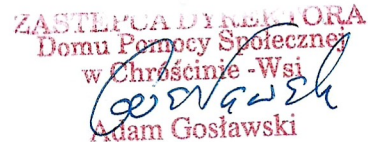 ZASTĘPCA DYREKTORA
Domu Pomocy Społecznej
w Chróścinie -Wsi
Adam Gosławski